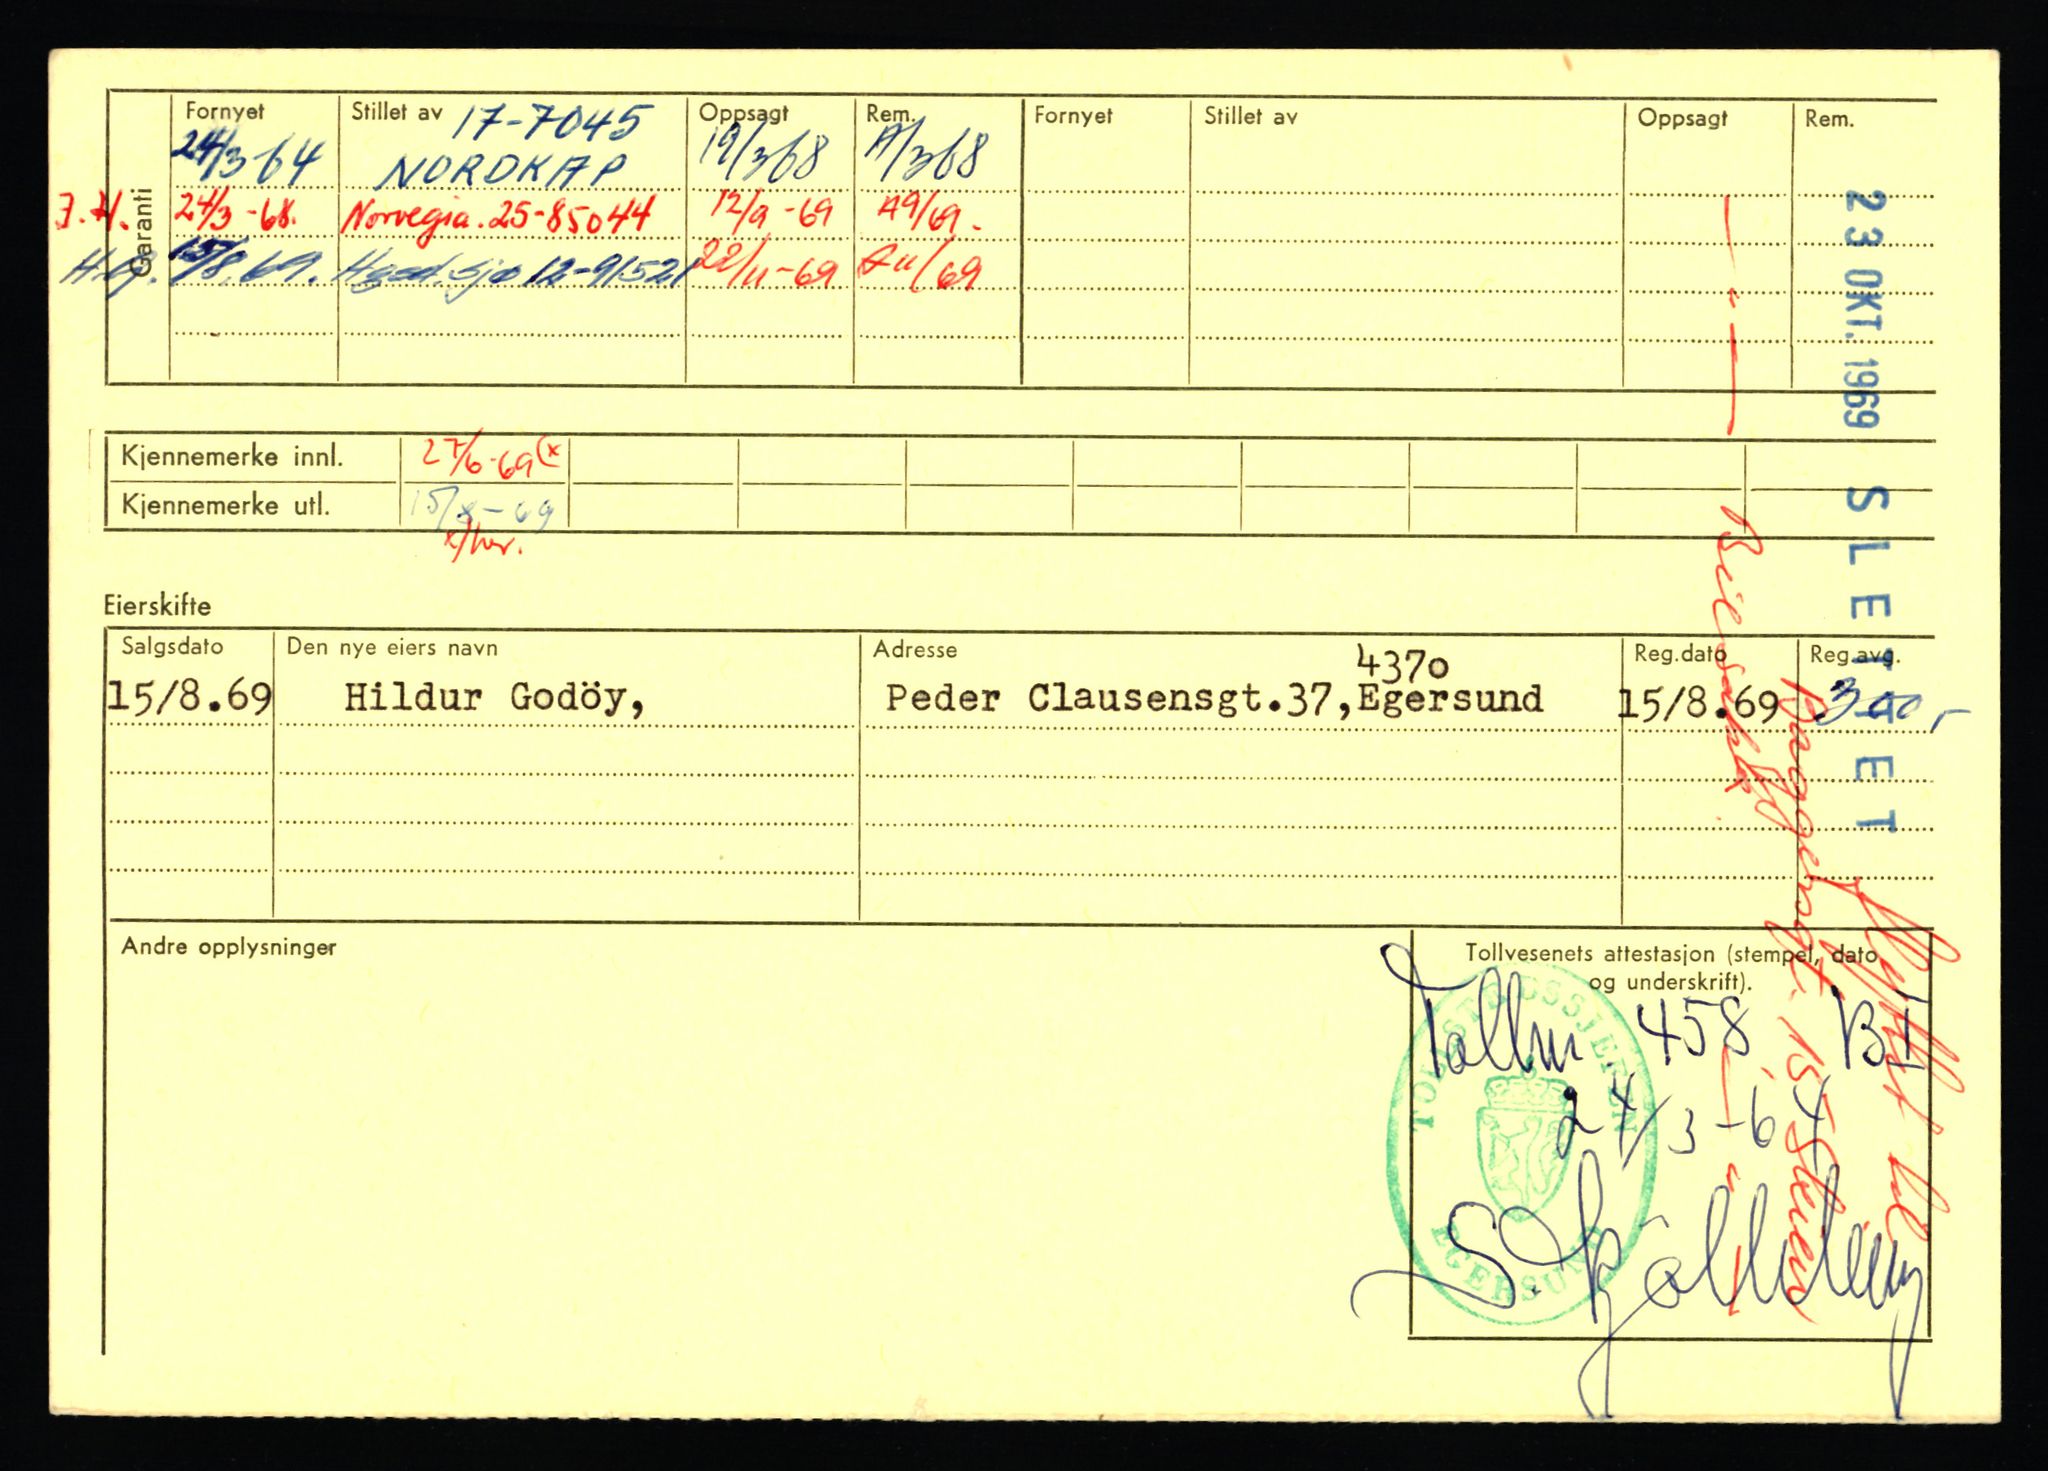 Garanti
Fornyet Stillet av Oppsagt Rem. Fornyet Stillet av Oppsagt Rem.
17-7045
24/3-64 NORDKAP 19/3 68 A/3 68
J.H. 24/3-68. Norvegia. 25-85044 12/9-69 A9/69.
15/8.69. 12-91521 22/11-69 A11/69
Kjennemerke innl. 27/6-69 (x
Kjennemerke utl. 15/8-69
Eierskifte
Salgsdato Den nye eiers navn Adresse Reg.dato Reg.avg.
4370
15/8.69 Hildur Godöy, Peder Clausensgt.37, Egersund 15/8.69 300,-
Andre opplysninger
Tollvesenets attestasjon (stempel, dato
og underskrift).
Tollnr. 458 BI
24/3-64
TOLLSTEDSSJEFEN
EGERSUND
23 OKT. 1969 SLETTET
Flyttet til
15